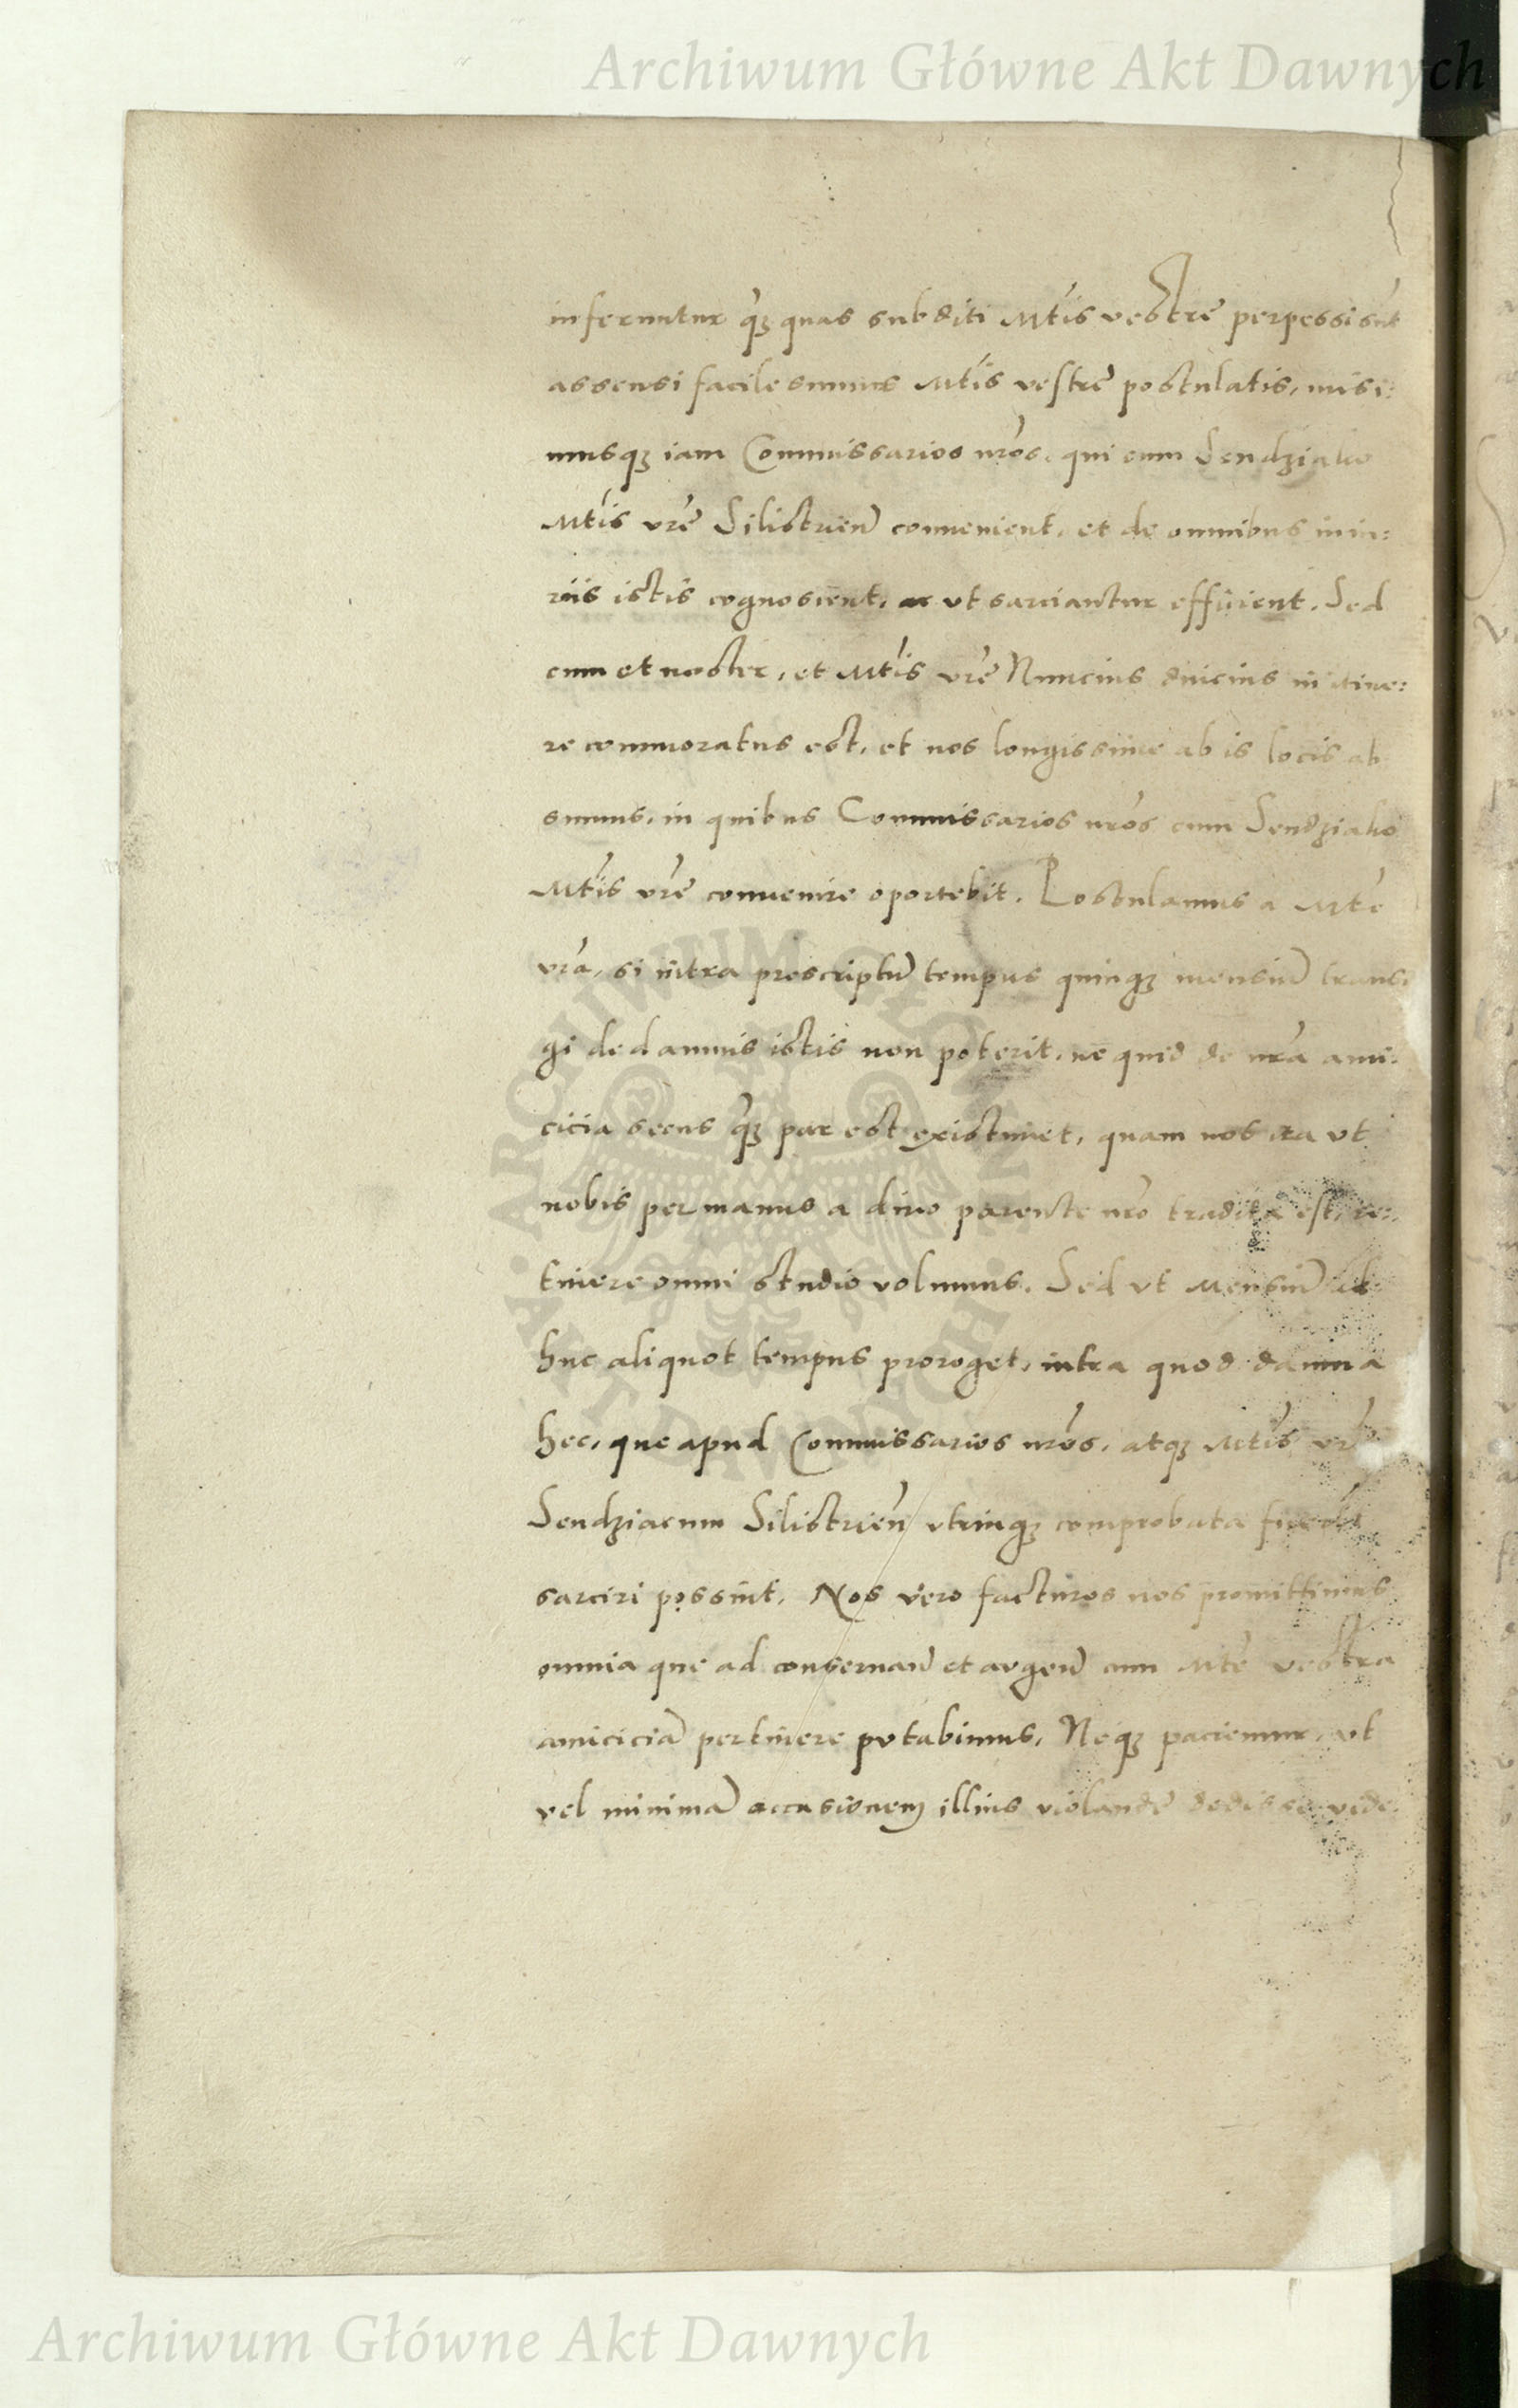 Archiwum Główne Akt Dawnych
inferuntur q̃ȝ quas subditi Mt̃is vestrẽ perpessi sũt
assensi facile sumus Mt̃is vestrẽ postulatis, misi:
musqȝ iam Commissarios nr̃os, qui cum Sendziako
Mt̃is vr̃e Silistrień conuenient, et de omnibus iniu:
riis istis cognoscent, ac vt sarciantur efficient. Sed
cum et noster, et Mt̃is vr̃e Nuncius diucius in itine:
re commoratus est, et nos longissime ab is locis ab
sumus, in quibus Commissarios nr̃os cum Sendziako
Mt̃is vr̃e conuenire oportebit. Postulamus a Mt̃e
vr̃a, si intra prescriptũ tempus quinqȝ mensiũ trans:
gi de damnis istis non poterit, ne quid de nr̃a ami:
cicia secus q̃ȝ par est existimet, quam nos ita vt
nobis per manus a diuo parente nr̃o tradita est, re:
tinere omni studio volumus. Sed vt Mensiũ ad
huc aliquot tempus proroget, intra quod damna
hec, que apud Commissarios nr̃os, atqȝ Mt̃is vr̃e
Sendziacum Silistrień vtrinqȝ comprobata fuerint
sarciri possint. Nos vero facturos nos promittimus
omnia que ad conseruañ et augeñ cum Mt̃e vestra
amiciciã pertinere putabimus. Neqȝ paciemur, vt
vel minimã occasionem illius violandẽ dedisse vide:
ARCHIWUM GŁÓWNE · AKT DAWNYCH ·
Archiwum Główne Akt Dawnych